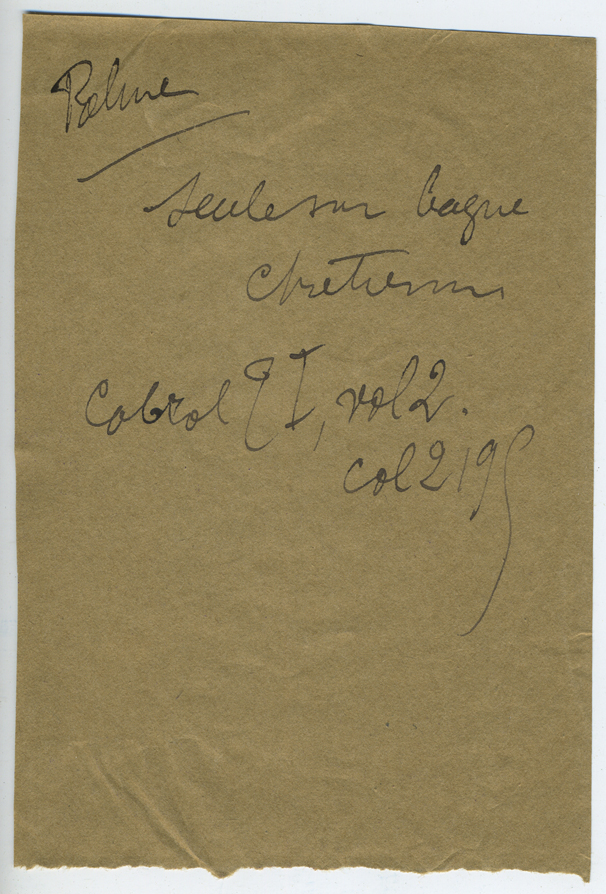 Palme
seule sur bague
chretienne
Cabrol T I, vol 2.
col 2195